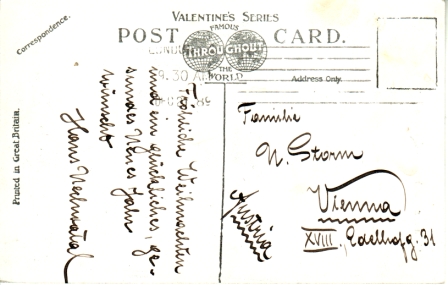 VALENTINE'S SERIES
POST CARD.
FAMOUS
THROUGHOUT
THE
WORLD
Correspondence.
Address Only.
Printed in Great Britain.
9.30 AM
Fröhliche Weihnachten
und ein glückliches, ge-
sundes Neues Jahr
wünscht
Hans
Familie
N. Storm
Vienna
XVIII., Edelhofg. 31
Austria